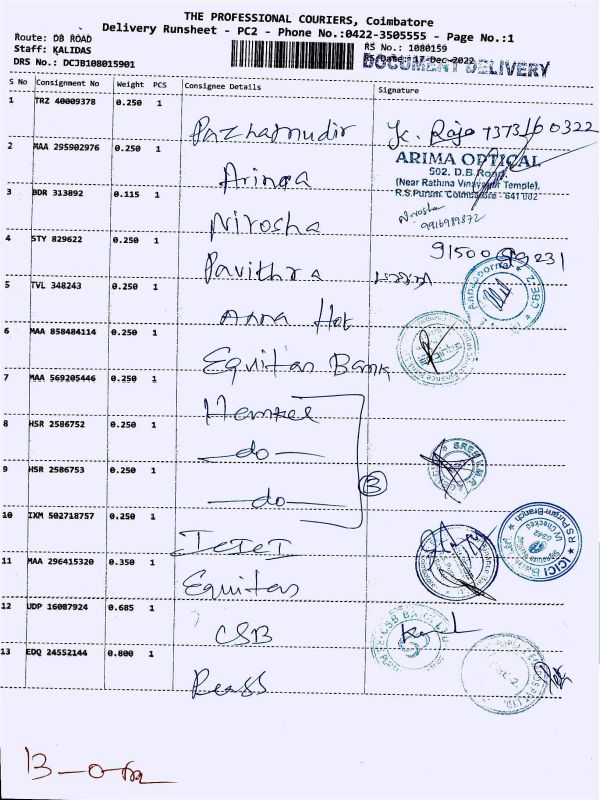 THE PROFESSIONAL COURIERS, Coimbatore
Delivery Runsheet - PC2 - Phone No.:0422-3505555 - Page No.:1
Route: DB ROAD
Staff: KALIDAS
DRS No.: DCJB108015901
RS No.: 1080159
RS Date: 17-Dec-2022
DOCUMENT DELIVERY
S No Consignment No Weight PCS Consignee Details Signature
1 TRZ 40009378 0.250 1
Pazhamudir K. Raja
2 MAA 295902976 0.250 1
ARIMA OPTICAL
502, D.B.Road,
(Near Rathina Vinayagar Temple),
R.S.Puram, Coimbatore - 641 002
3 BDR 313892 0.115 1
Nirosha Nirosha
9916989872
4 STY 829622 0.250 1
Pavithra
5 TVL 348243 0.250 1
Anna Hot
6 MAA 858484114 0.250 1
Equitas Bank
7 MAA 569205446 0.250 1
8 HSR 2586752 0.250 1
do
9 HSR 2586753 0.250 1
do 3
10 IXM 502718757 0.250 1
ICICI
ICICI Bank
RS Puram-Branch
11 MAA 296415320 0.350 1
Equitas
12 UDP 16087924 0.685 1
CSB
CSB BANK
13 EDQ 24552144 0.800 1